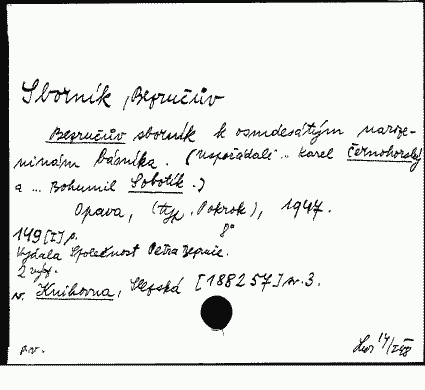 Sborník, Bezručův
Bezručův sborník k osmdesátým naroze-
ninám básníka. (Uspořádali .. Karel Černohorský
a ... Bohumil Sobotík.)
Opava, (typ. Pokrok), 1947.
8°
149 [I] p.
Vydala Společnost Petra Bezruče.
2 výt.
v. Knihovna, Slezská [188257] nr. 3.
p.v.